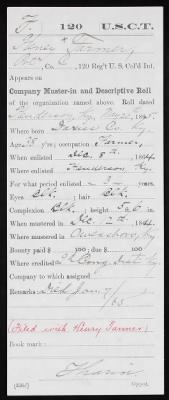 F 120 U.S.C.T.
Abner Farmer
Co. C, 120 Reg't U. S. Col'd Inf.
Appears on
Company Muster-in and Descriptive Roll
of the organization named above. Roll dated
Henderson Ky. 1865.
Where born Daviess Co. Ky.
Age 28 y'rs; occupation Farmer,
When enlisted Dec. 8th, 1864.
Where enlisted Henderson Ky.
For what period enlisted 3 years.
Eyes Blk.; hair Blk.
Complexion Blk.; height 5 ft. 6 in.
When mustered in Dec. , 1864.
Where mustered in Owensboro, Ky.
Bounty paid $ 100; due $ 100
Where credited 2d Cong. Dist. Ky.
Company to which assigned
Remarks: Died Jan. 7/
65
(Filed with Henry Farmer)
Book mark:
Copyist.